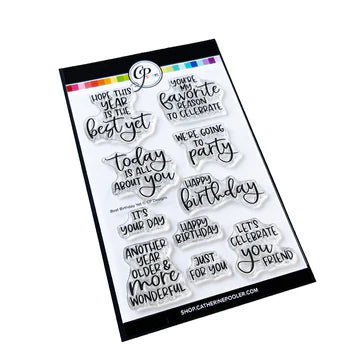 CP
HOPE THIS
YEAR
IS THE
best yet
YOU'RE
MY
favorite
REASON
TO CELEBRATE
today
IS ALL
ABOUT you
WE'RE GOING
TO
party
Best Birthday Yet © CP Designs
HAPPY
birthday
IT'S
YOUR DAY
HAPPY
BIRTHDAY
ANOTHER
YEAR
OLDER &
more
WONDERFUL
JUST
FOR YOU
LET'S
CELEBRATE
you
FRIEND
SHOP.CATHERINEPOOLER.COM